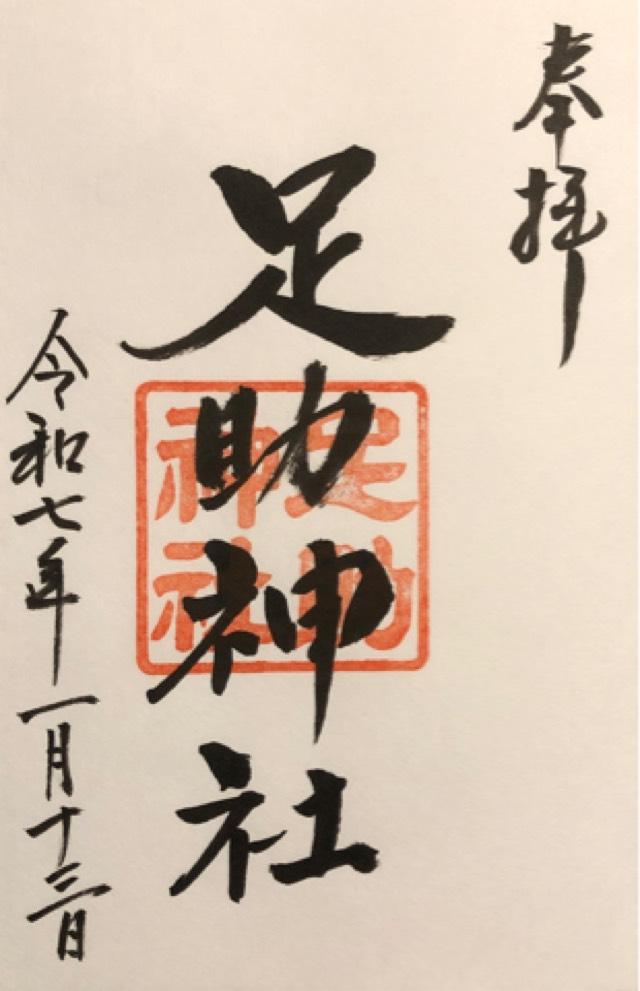 奉拝
足助神社
足助
神社
令和七年一月十三日